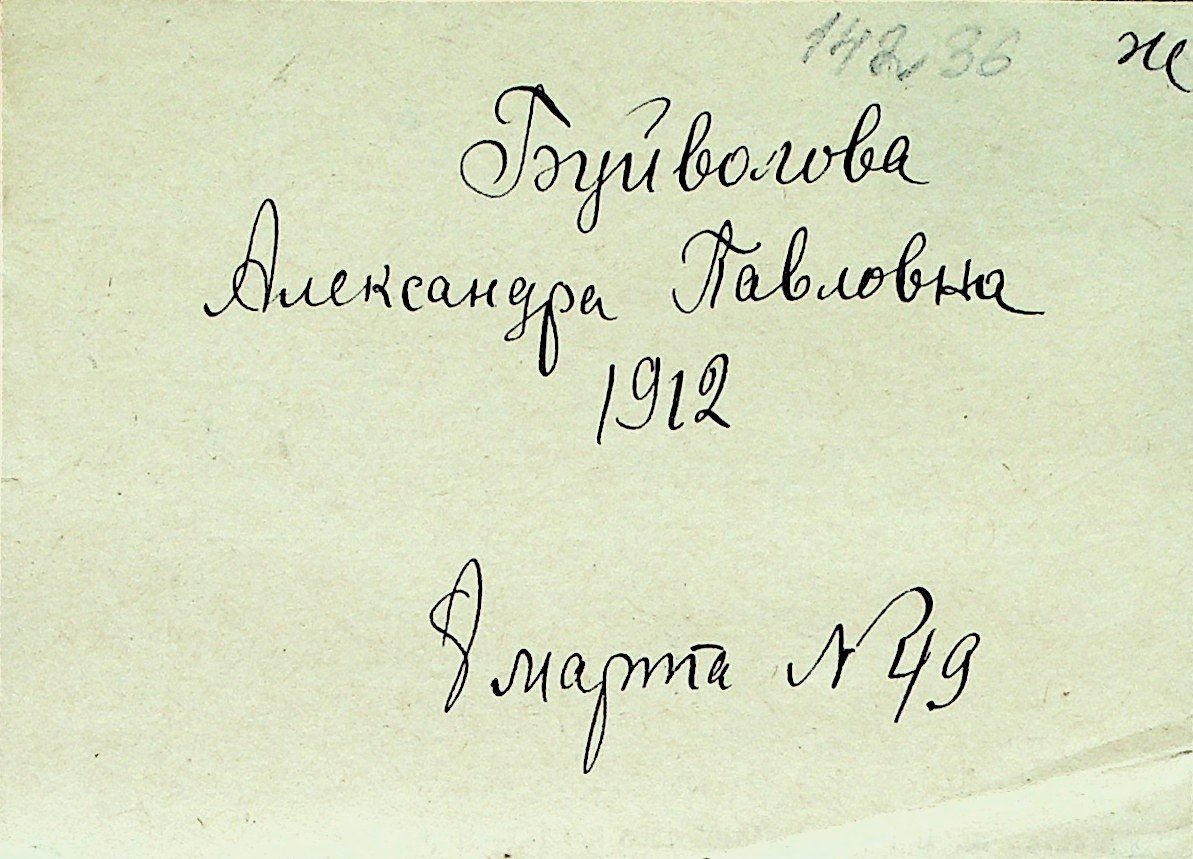 142 36 ж
Буйволова
Александра Павловна
1912
8 марта N 49